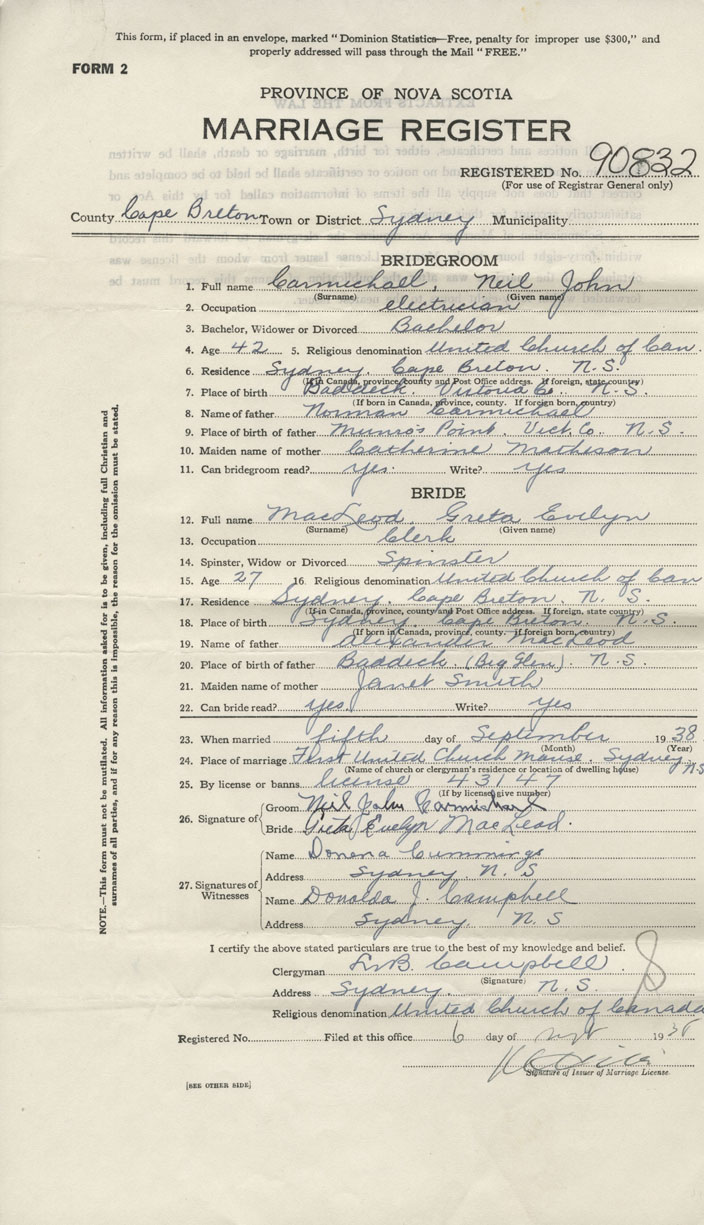 This form, if placed in an envelope, marked "Dominion Statistics—Free, penalty for improper use $300," and
properly addressed will pass through the Mail "FREE."
FORM 2
PROVINCE OF NOVA SCOTIA
MARRIAGE REGISTER
REGISTERED No. 90832
(For use of Registrar General only)
County Cape Breton Town or District Sydney Municipality
BRIDEGROOM
1. Full name Carmichael, Neil John
(Surname) (Given name)
2. Occupation electrician
3. Bachelor, Widower or Divorced Bachelor
4. Age 42 5. Religious denomination United Church of Can.
6. Residence Sydney, Cape Breton. N.S.
(If in Canada, province, county and Post Office address. If foreign, state country)
7. Place of birth Baddeck. Victoria Co. N.S.
(If born in Canada, province, county. If foreign born, country)
8. Name of father Norman Carmichael
9. Place of birth of father Munro's Point. Vict. Co. N.S.
10. Maiden name of mother Catherine Matheson
11. Can bridegroom read? yes. Write? yes
BRIDE
12. Full name MacLeod, Greta Evelyn
(Surname) (Given name)
13. Occupation Clerk
14. Spinster, Widow or Divorced Spinster
15. Age 27 16. Religious denomination United Church of Can
17. Residence Sydney, Cape Breton. N. S.
(If in Canada, province, county and Post Office address. If foreign, state country)
18. Place of birth Sydney, Cape Breton. N.S.
(If born in Canada, province, county. if foreign born, country)
19. Name of father Alexander MacLeod
20. Place of birth of father Baddeck, (Big Glen). N.S.
21. Maiden name of mother Janet Smith
22. Can bride read? yes. Write? yes
23. When married fifth day of September 1938
(Month) (Year)
24. Place of marriage First United Church Manse, Sydney N.S
(Name of church or clergyman's residence or location of dwelling house)
25. By license or banns license 43147
(If by license, give number)
26. Signature of Groom Neil John Carmichael
Bride Greta Evelyn MacLeod.
27. Signatures of Witnesses
Name Donena Cummings
Address Sydney. N. S
Name Donalda J. Campbell
Address Sydney. N. S
I certify the above stated particulars are true to the best of my knowledge and belief.
Clergyman Campbell
(Signature)
Address Sydney. N.S.
Religious denomination United Church of Canada
Registered No. Filed at this office 6 day of 1938
Signature of Issuer of Marriage License
[SEE OTHER SIDE]
NOTE.—This form must not be mutilated. All information asked for is to be given, including full Christian and
surnames of all parties, and if for any reason this is impossible, the reason for the omission must be stated.